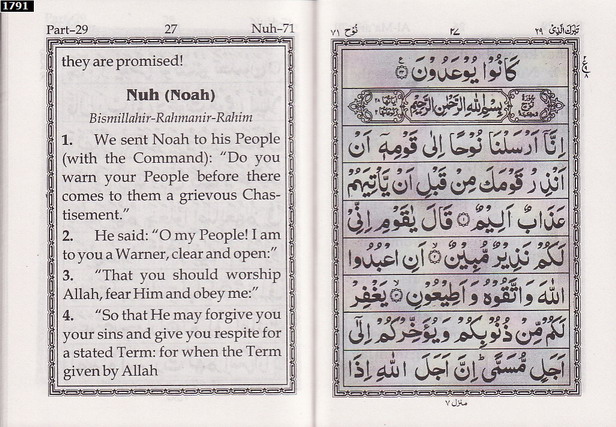 1791
Part–29 27 Nuh–71
they are promised!
Nuh (Noah)
Bismillahir-Rahmanir-Rahim
1. We sent Noah to his People
(with the Command): “Do you
warn your People before there
comes to them a grievous Chas-
tisement.”
2. He said: “O my People! I am
to you a Warner, clear and open:”
3. “That you should worship
Allah, fear Him and obey me:”
4. “So that He may forgive you
your sins and give you respite for
a stated Term: for when the Term
given by Allah
تبٰرك الذی ۲۹ ۲۷ نُوْح ۷۱
كَانُوْا يُوْعَدُوْنَ
بِسْمِ اللهِ الرَّحْمٰنِ الرَّحِيْمِ
اِنَّآ اَرْسَلْنَا نُوْحًا اِلٰى قَوْمِهٖٓ اَنْ
اَنْذِرْ قَوْمَكَ مِنْ قَبْلِ اَنْ يَّاْتِيَهُمْ
عَذَابٌ اَلِيْمٌ ۝۱ قَالَ يٰقَوْمِ اِنِّىْ
لَكُمْ نَذِيْرٌ مُّبِيْنٌ ۝۲ اَنِ اعْبُدُوا
اللهَ وَاتَّقُوْهُ وَاَطِيْعُوْنِ ۝۳ يَغْفِرْ
لَكُمْ مِّنْ ذُنُوْبِكُمْ وَيُؤَخِّرْكُمْ اِلٰٓى
اَجَلٍ مُّسَمًّى ؕ اِنَّ اَجَلَ اللهِ اِذَا
منزل ۷